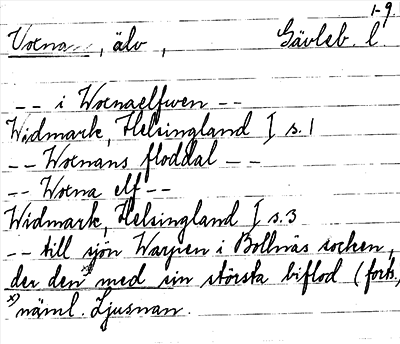 1-9.
Voxna, älv, Gävleb. l.
-- i Woxnaelfwen --
Widmark, Helsingland I s. 1
-- Woxnans floddal --
-- Woxna elf --
Widmark, Helsingland I s. 3
-- till sjön Warpen i Bollnäs socken,
der den x) med sin största biflod (forts.,
x) näml. Ljusnan.